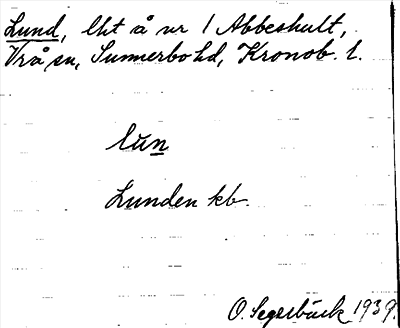 Lund, lht å nr 1 Abbeshult,
Vrå sn, Sunnerbo hd, Kronob. l.
lun
Lunden kb.
O. Segerbäck 1939.